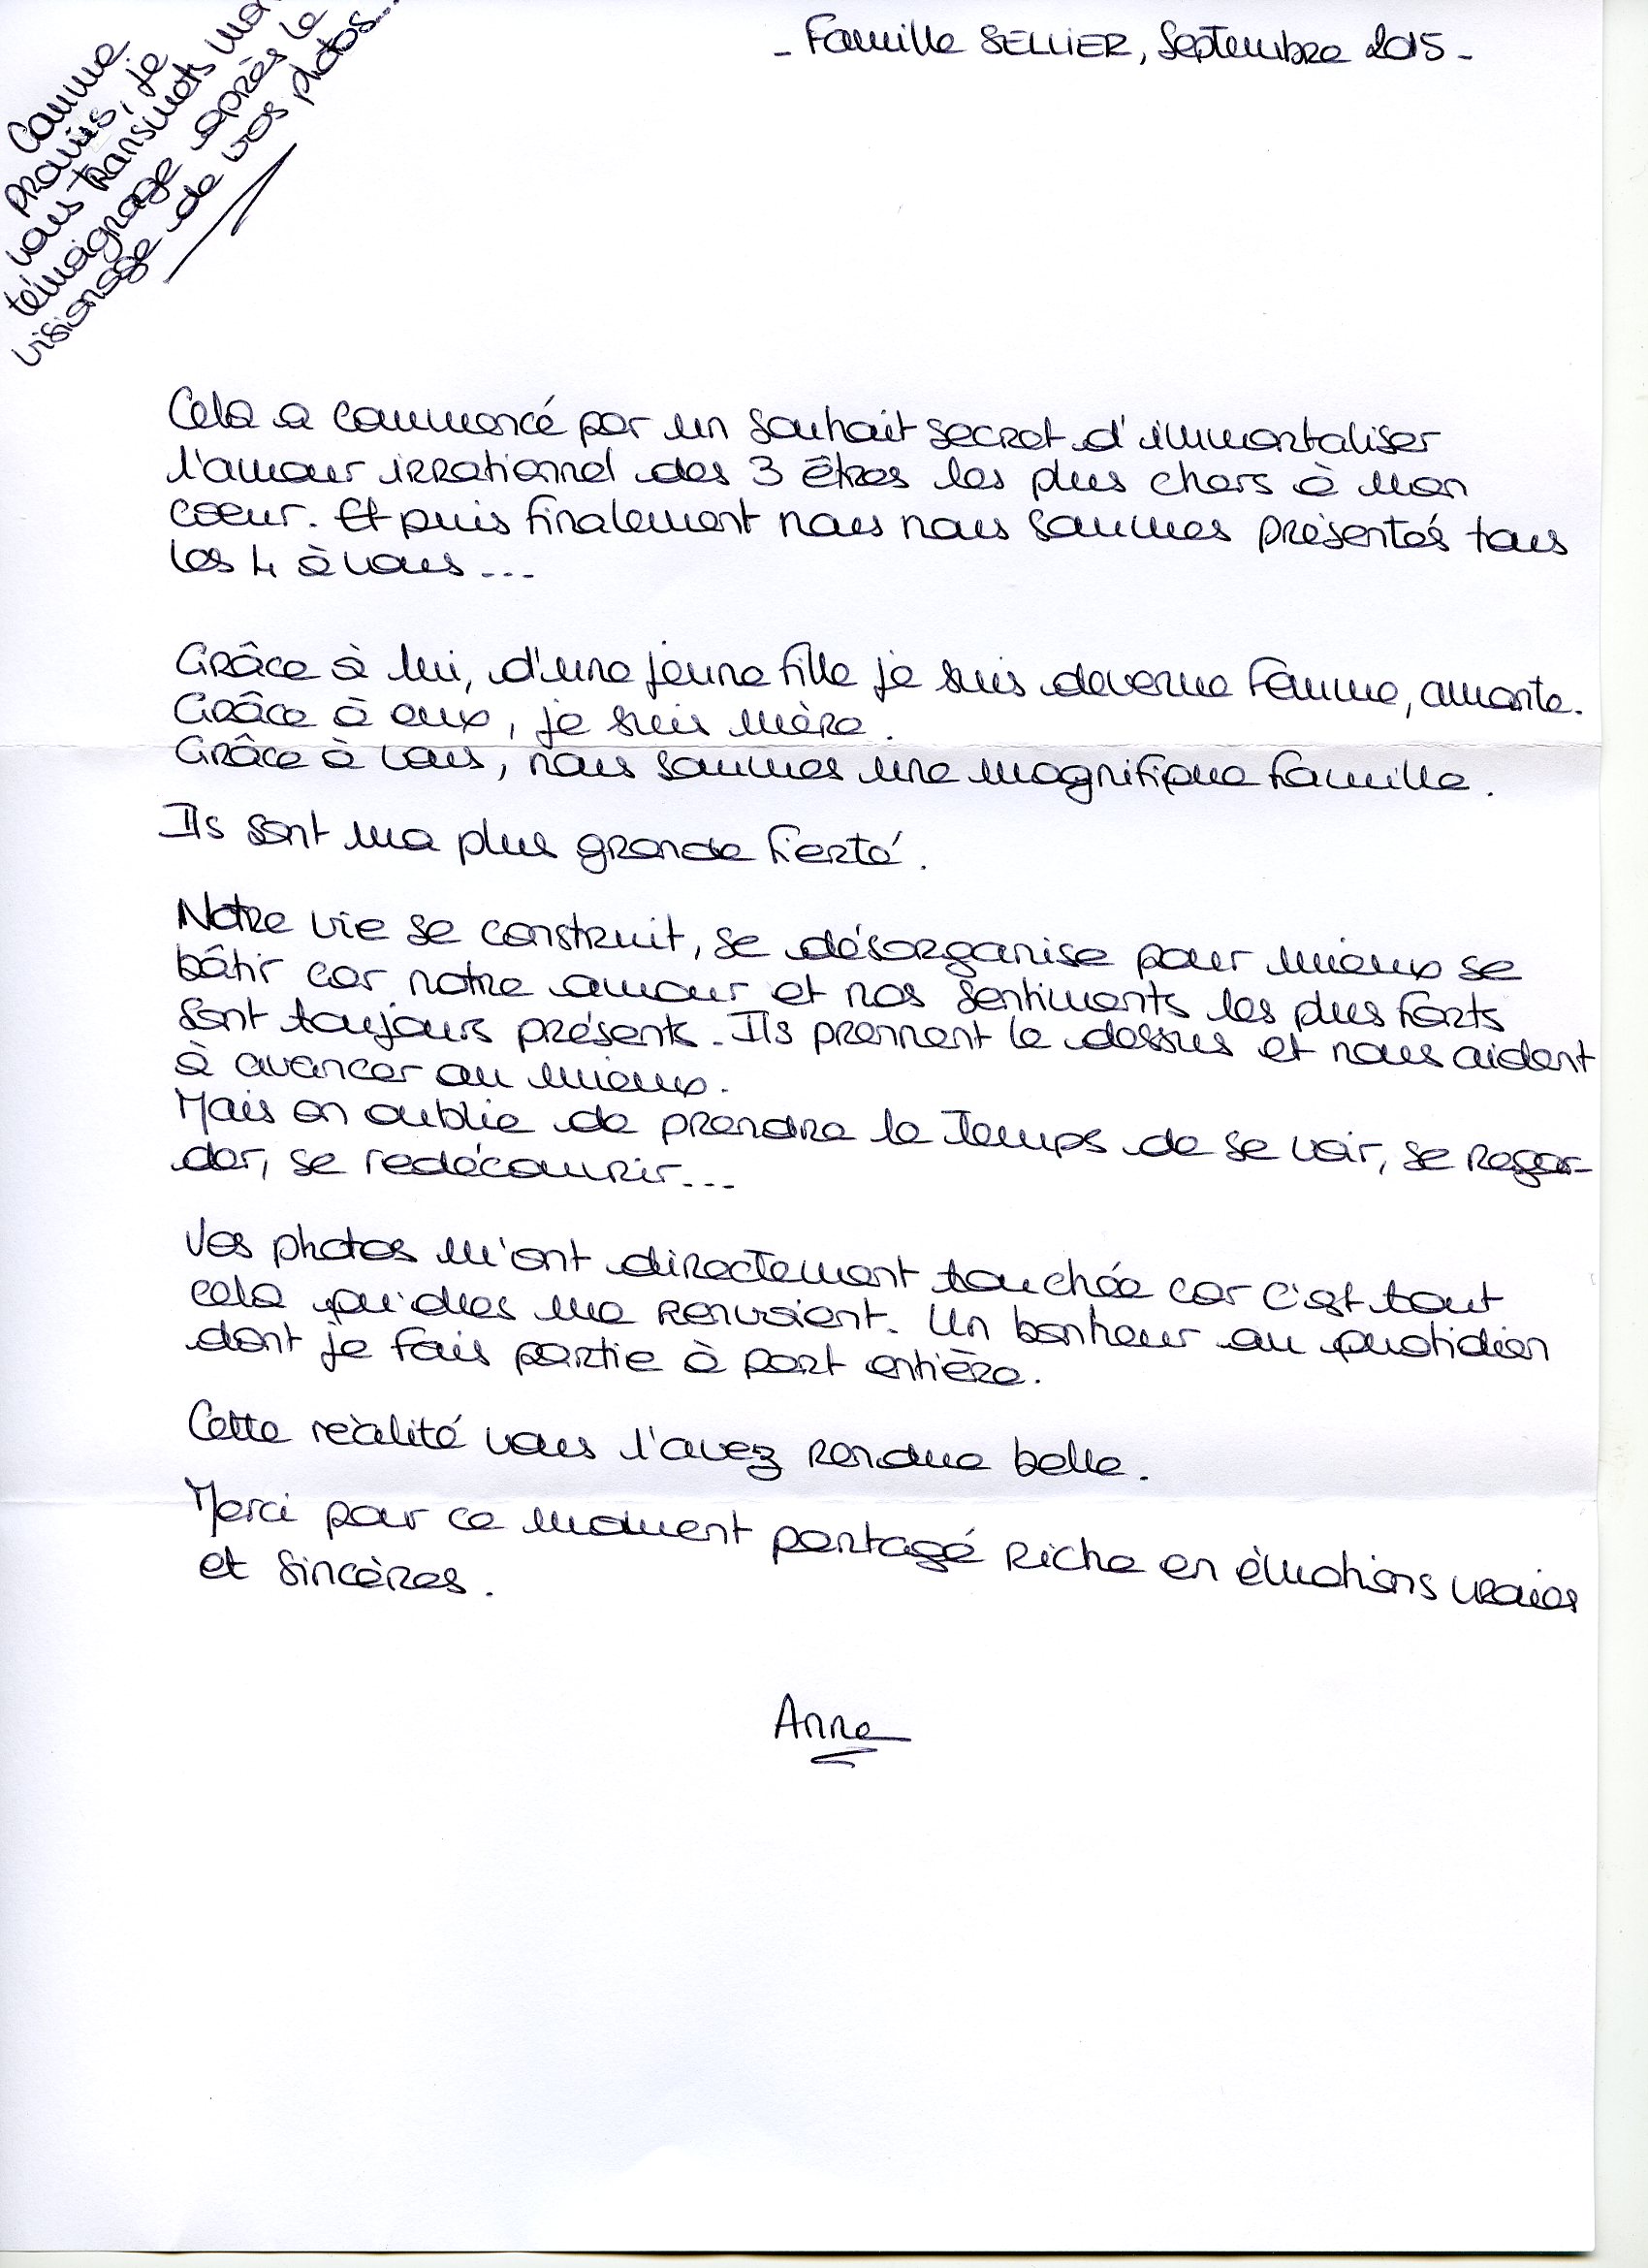 - Famille SELLIER, Septembre 2015 -
Comme
promis, je
vous transmets mon
témoignage après le
visionage de vos photos...
Cela a commencé par un souhait secret d'immortaliser
l'amour irrationnel des 3 êtres les plus chers à mon
coeur. Et puis finalement nous nous sommes présentés tous
les 4 à vous...
Grâce à lui, d'une jeune fille je suis devenue femme, amante.
Grâce à eux, je suis mère.
Grâce à vous, nous sommes une magnifique famille.
Ils sont ma plus grande fierté.
Notre vie se construit, se désorganise pour mieux se
bâtir car notre amour et nos sentiments les plus forts
sont toujours présents. Ils prennent le dessus et nous aident
à avancer au mieux.
Mais on oublie de prendre le temps de se voir, se regar-
der, se redécouvrir...
Vos photos m'ont directement touchée car c'est tout
cela qu'elles me renvoient. Un bonheur au quotidien
dont je fais partie à part entière.
Cette réalité vous l'avez rendue belle.
Merci pour ce moment partagé riche en émotions vraies
et sincères.
Anne